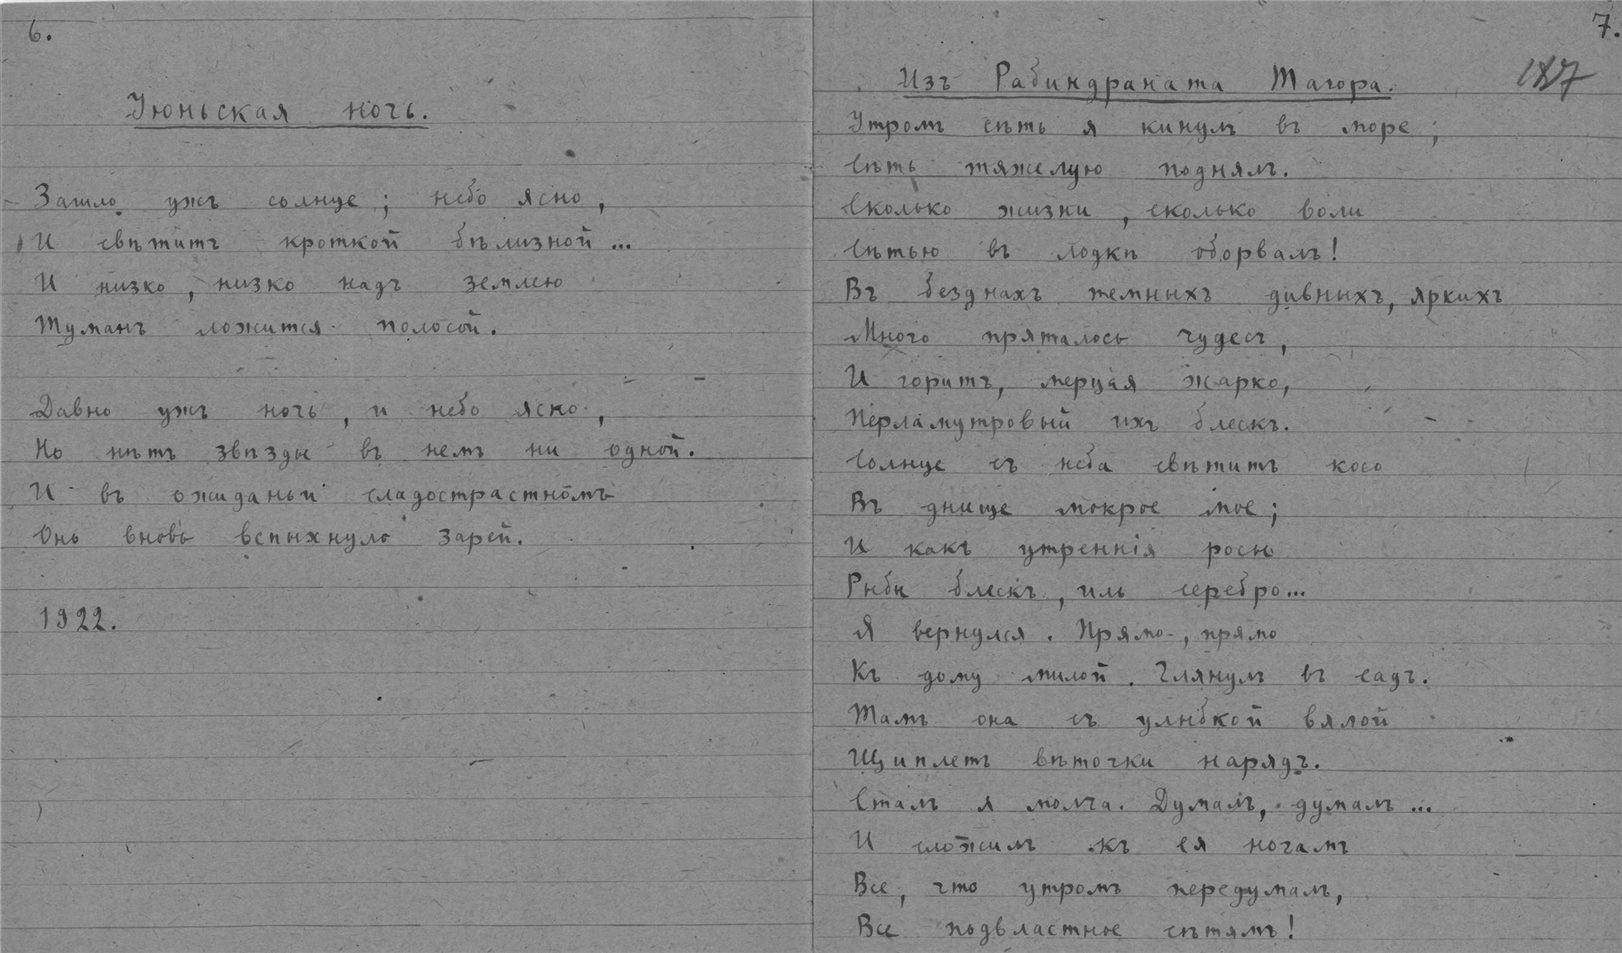 6.
Iюньская ночь.
Зашло ужъ солнце; небо ясно,
И свѣтитъ кроткой бѣлизной...
И низко, низко надъ землею
Туманъ ложится полосой.
Давно ужъ ночь, и небо ясно,
Но нѣтъ звѣзды въ немъ ни одной.
И въ ожиданьи сладострастномъ
Оно вновь вспыхнуло зарей.
1922.
7.
187
Изъ Рабиндраната Тагора.
Утромъ сѣть я кинулъ въ море;
Сѣть тяжелую поднялъ.
Сколько жизни, сколько воли
Сѣтью въ лодкѣ оборвалъ!
Въ безднахъ темныхъ дивныхъ, яркихъ
Много пряталось чудесъ,
И горитъ, мерцая жарко,
Перламутровый ихъ блескъ.
Солнце съ неба свѣтитъ косо
Въ днище мокрое мое;
И какъ утреннія росы
Рыбы блескъ, иль серебро...
Я вернулся. Прямо, прямо
Къ дому милой. Глянулъ въ садъ.
Тамъ она съ улыбкой вялой
Щиплетъ вѣточки нарядъ.
Сталъ я молча. Думалъ, думалъ...
И сложилъ къ ея ногамъ
Все, что утромъ передумалъ,
Все подвластное сѣтямъ!